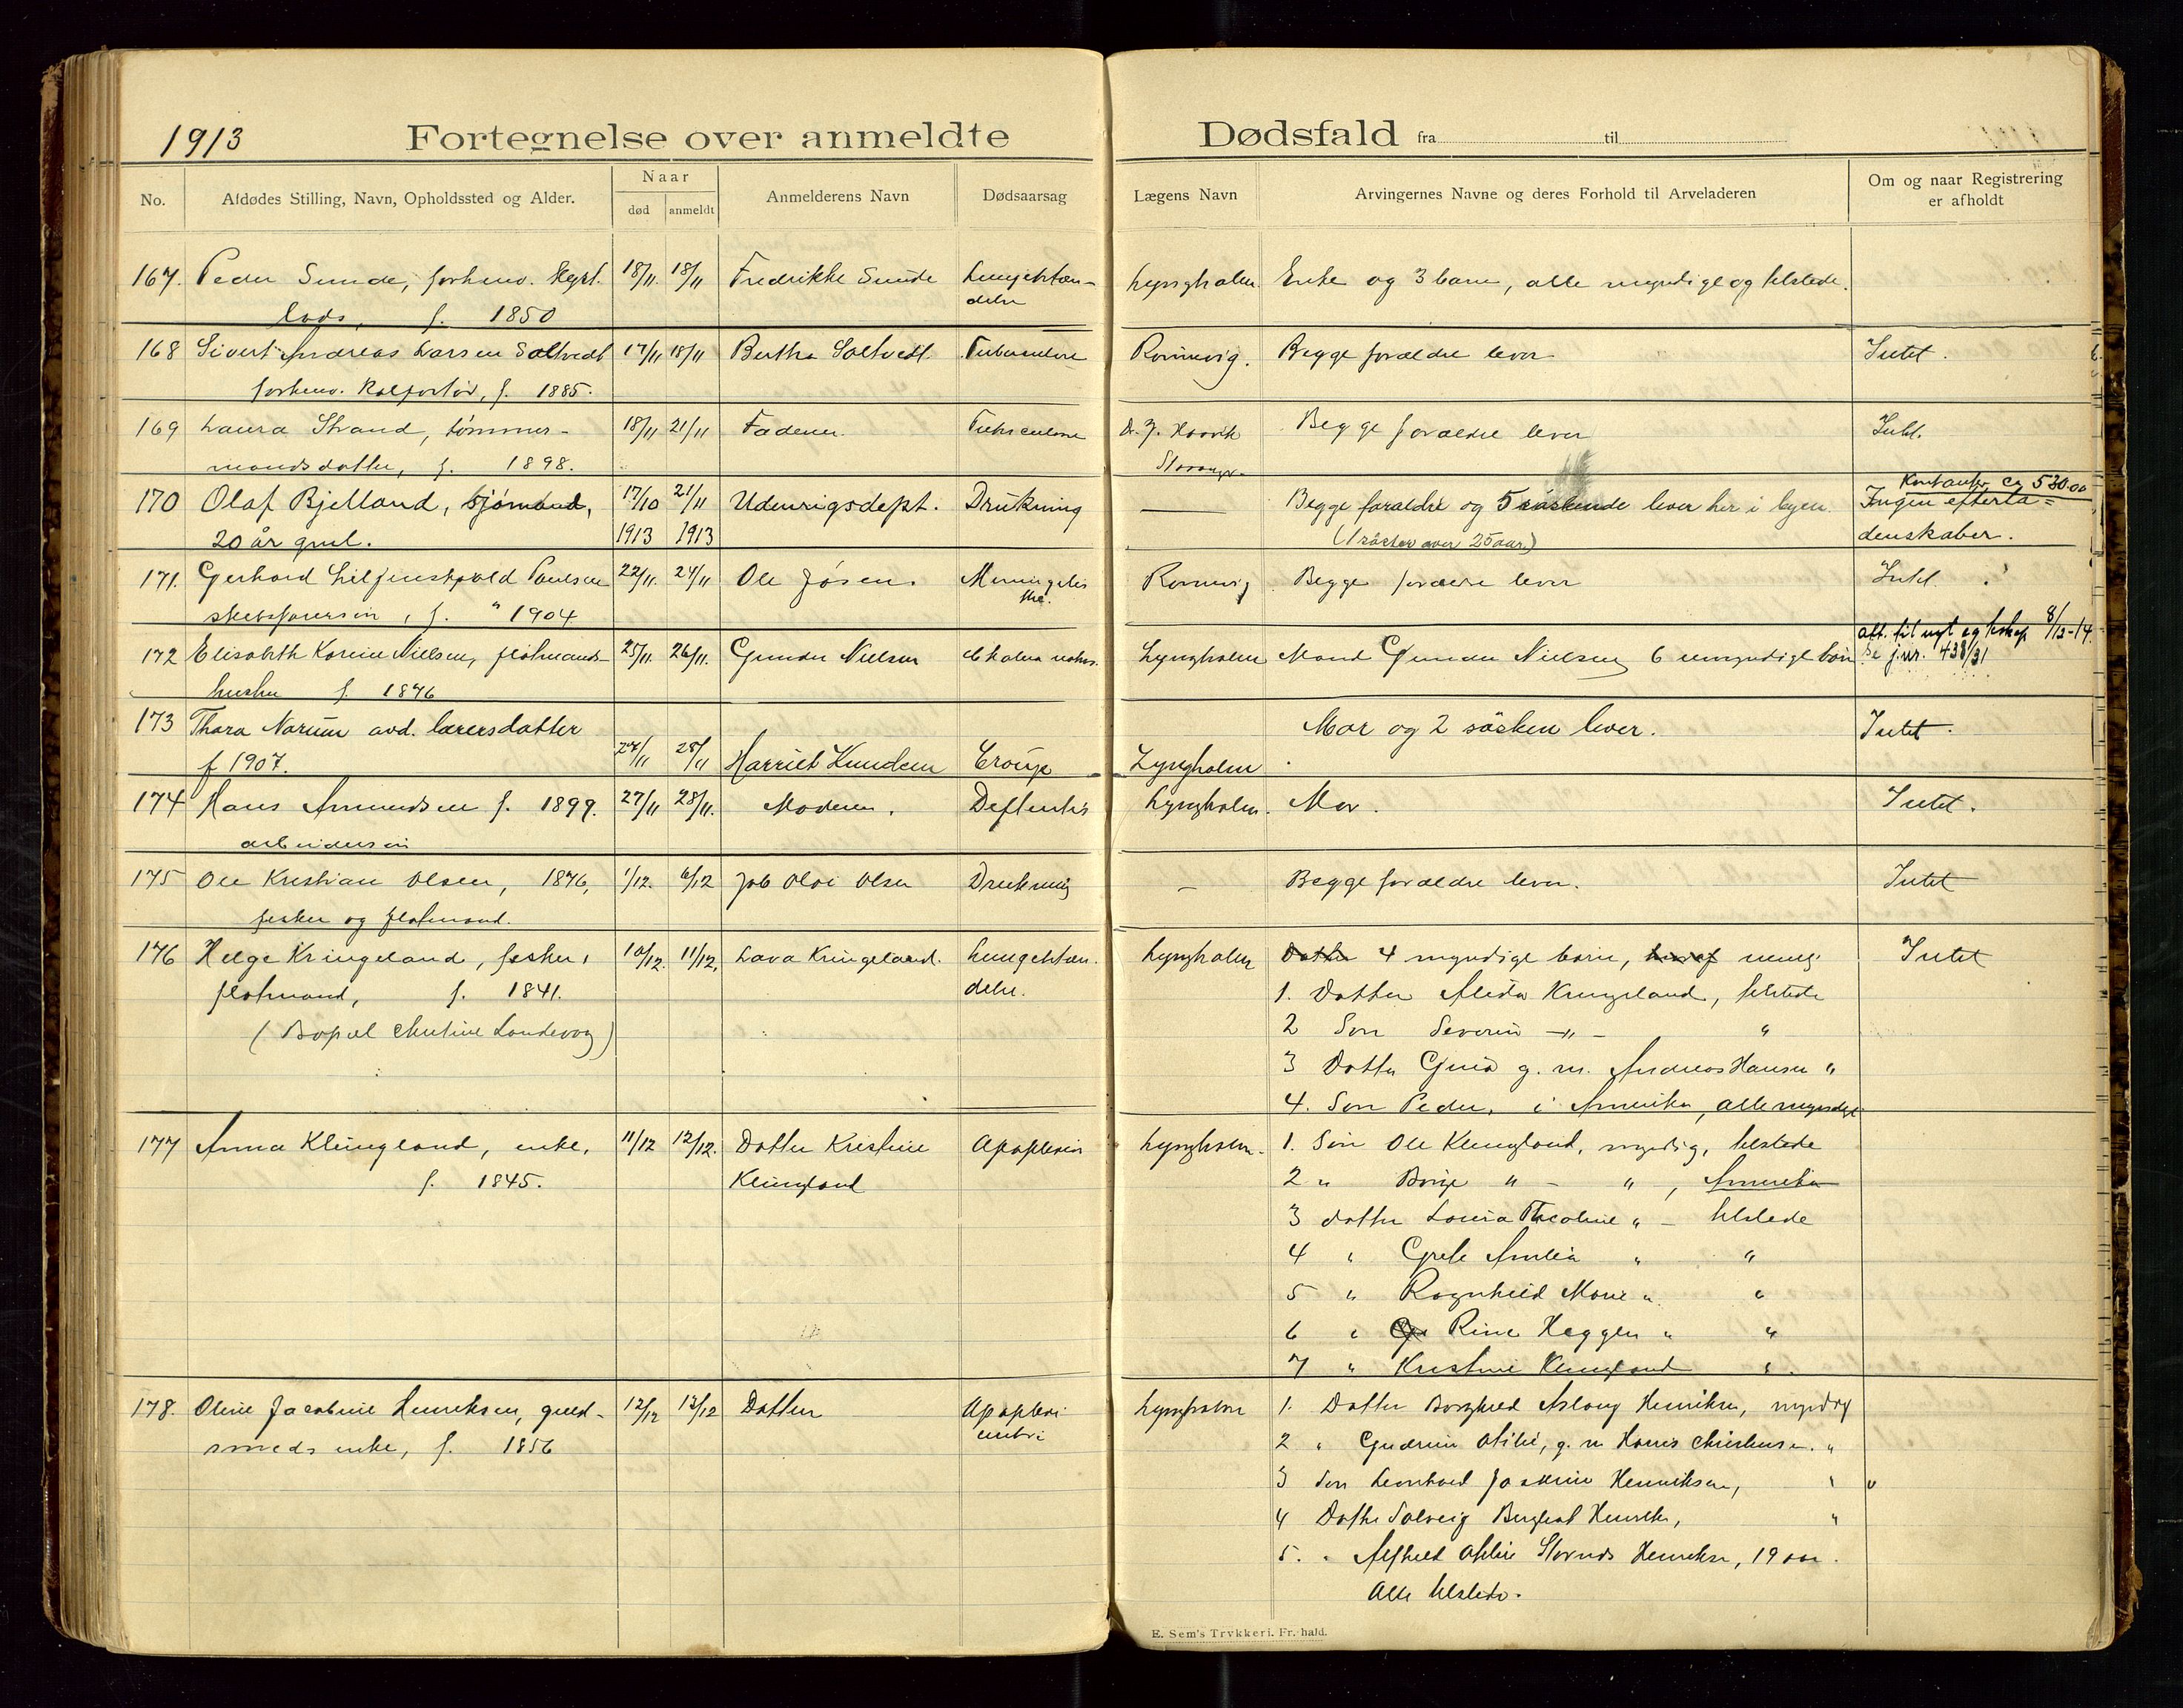 1913 Fortegnelse over anmeldte Dødsfald fra til
No. Afdødes Stilling, Navn, Opholdssted og Alder. Naar død anmeldt Anmelderens Navn Dødsaarsag Lægens Navn Arvingernes Navne og deres Forhold til Arveladeren Om og naar Registrering er afholdt
167. Peder Sunde, forhenv. 18/11. 18/11 Fredrikke Sunde Lungebetæn- Lyngholm Enke og 3 barn, alle myndige og tilstede.
lods, f. 1850 delse
168 Sivert Andreas Larsen Saltvedt 17/11 18/11 Bertha Saltvedt. Tuberculose Ronnevig. Begge forældre lever Intet.
forhenv. Kolportør, f. 1885.
169 Laura Strand, tømmer- 18/11 21/11 Faderen. Tuberculose Dr. J. Haavik Begge forældre lever Intet.
mandsdatter, f. 1898. Stavanger.
170 Olaf Bjelland, sjømand, 17/10 21/11 Udenrigsdept. Drukning — Begge forældre og 5 søskende lever her i byen Kontanter ca 530.00 Ingen efterla=
20 år gml. 1913 1913 (1 søster over 25 aar.) denskaber.
171. Gerhard Liljenskjold Paulsen 22/11. 24/11 Ole Jósen. Meningitis Ronnevig Begge forældre lever Intet.
skibsførersøn, f. 1904 tbc.
172 Elisabeth Korine Nielsen, flotmands- 25/11. 26/11. Gunder Nielsen Lyngholm Mand Gunder Nielsen, 6 umyndige børn att. til 8/12-14.
hustru f. 1876 Se j.nr. 438/31
173 Thora Narum avd. lærersdatter Mor og 2 søsken lever. Intet.
f 1907. 27/11 28/11 Harriet Knudsen Croup Lyngholm
174 Hans Amundsen f. 1899. 27/11 28/11. Moderen. Lyngholm. Mor. Intet.
arbeidersøn
175 Ole Kristian Olsen, 1876, 1/12. 6/12 Job Olai Olsen Drukning — Begge forældre lever. Intet
fisker og flotmand.
176 Helge Kringeland, fisker, 10/12. 11/12. Lava Kringeland. Lungebetæn- Lyngholm Datter 4 myndige børn, herof nemlig Intet
flotmand, f. 1841. delse. 1. Datter Alida Kringeland, tilstede
2 Søn Severin —„— "
3 Datter Gina g. m. Andreas Hansen "
4. Søn Peder, i Amerika, alle myndige
177 Anna Klingland, enke, 11/12 12/12. Datter Kristine Apoplexia Lyngholm. 1. Søn Ole Klingland, myndig, tilstede
f. 1845. Klingland 2 " Børge " — ", Amerika
3 datter Lovisa Theoline " — tilstede
4 " Grete Amlia " "
5 " Ragnhild Marie " "
6 " Rine Heggen " "
7 " Kristine Klingland "
178. Oline Jacobine Henriksen, guld- 12/12 13/12 Datter Apoplexi Lyngholm 1. Datter Borghild Aslaug Henriksen, myndig
smeds enke, f. 1856 cerebri 2 " Gudrun Otilie, g. m Hans Christensen. "
3 Søn Leonhard Joakim Henriksen, "
4 Datter Solveig Bergliot Henriksen, "
5. " Alfhild Henriksen, 19 aar.
Alle tilstede.
E. Sem's Trykkeri. Fr.hald.